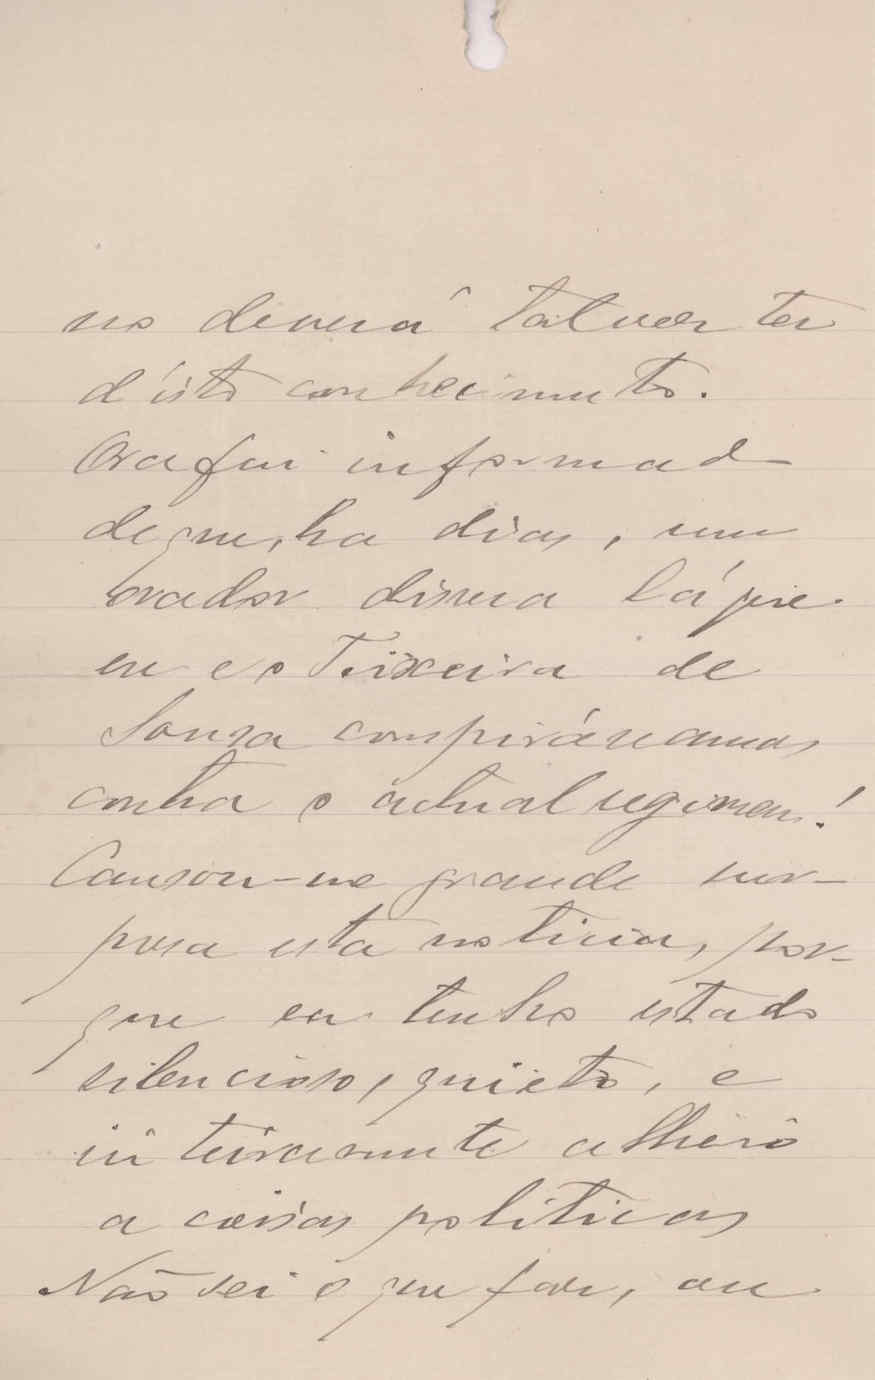 no deverá talvez ter
d'isto conhecimento.
Ora fui informado
de que, ha dias, um
orador dissera lá que
eu e o Teixeira de
Sousa conspiráramos
contra o actual regimen!
Causou-me grande sur-
presa esta noticia, por-
que eu tenho estado
silencioso, quieto, e
inteiramente alheio
a coisas politicas
Não sei o que faz, ou